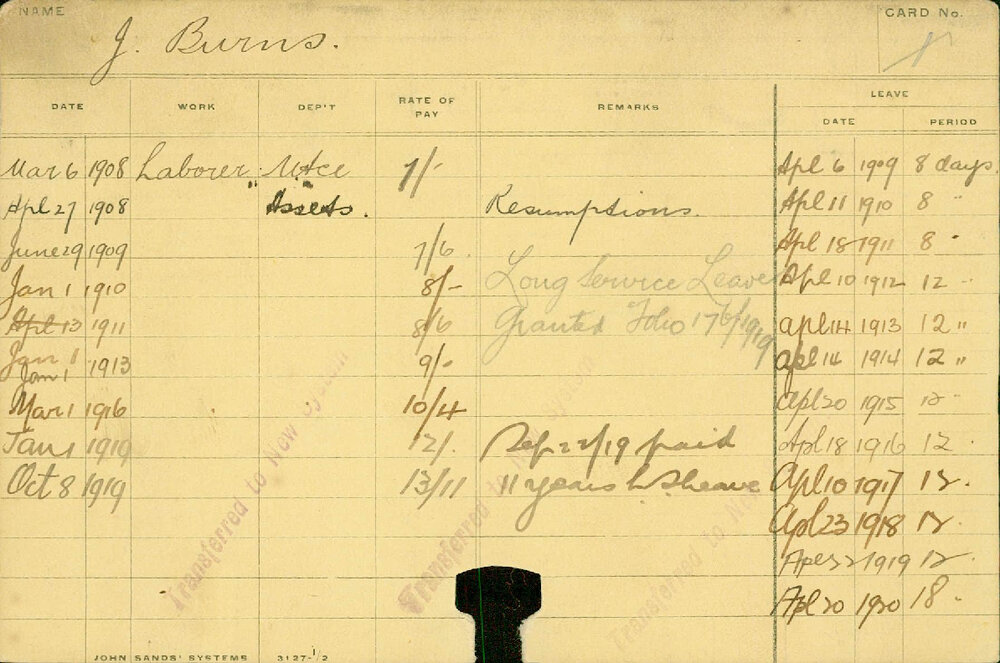 NAME
J. Burns.
CARD No.
1
DATE WORK DEP'T RATE OF PAY REMARKS LEAVE
DATE PERIOD
Mar 6 1908 Laborer Mtce 7/- Apl 6 1909 8 days.
Apl 27 1908 " Assets. Resumptions. Apl 11 1910 8 "
June 29 1909 7/6 Apl 18 1911 8 "
Jan 1 1910 8/- Long Service Leave Apl 10 1912 12 "
Apl 13 1911 8/6 Granted Folio 176/1919 Apl 14 1913 12 "
Jan 1
Jan 1 1913 9/- Apl 14 1914 12 "
Mar 1 1916 10/4 Apl 20 1915 12 "
Jan 1 1919 12/. Sep 22/19 paid Apl 18 1916 12.
Oct 8 1919 13/11 11 years L S leave Apl 10 1917 12.
Apl 23 1918 12.
1919 12
Apl 20 1920 18.
Transferred to New System
Transferred to New System
Transferred to New
JOHN SANDS' SYSTEMS 3127-1/2